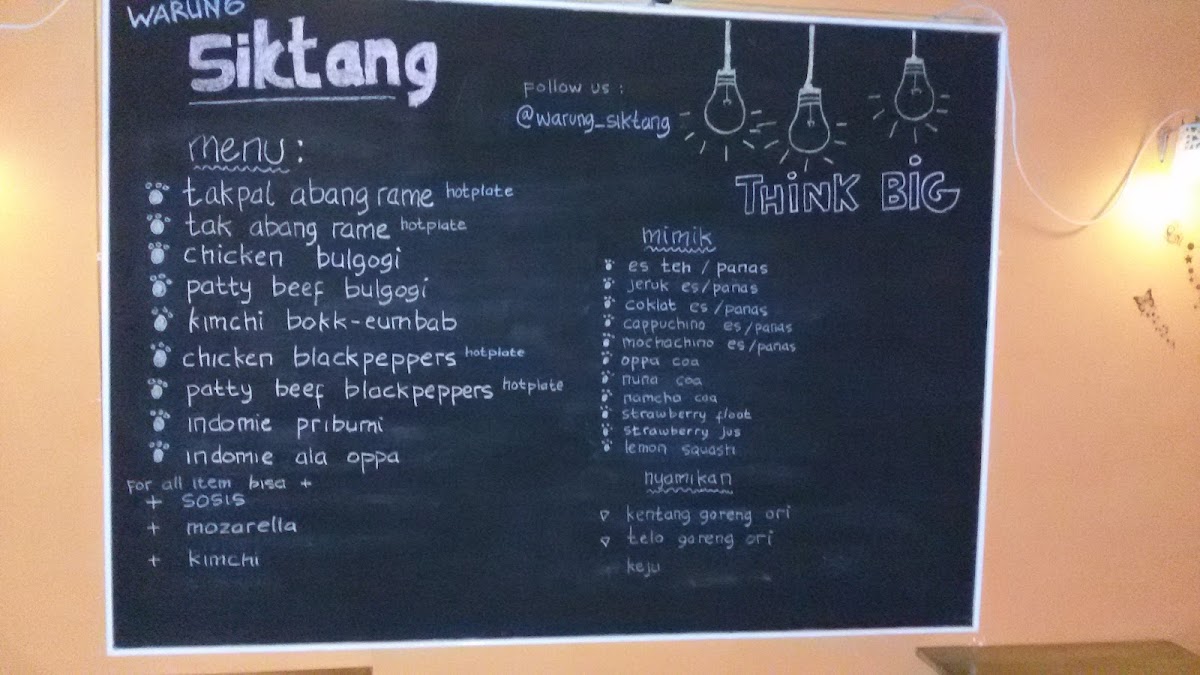 WARUNG
Siktang
Follow us :
@warung_siktang
THiNK BiG
menu :
takpal abang rame hotplate
tak abang rame hotplate
chicken bulgogi
patty beef bulgogi
kimchi bokk-eumbab
chicken blackpeppers hotplate
patty beef blackpeppers hotplate
indomie pribumi
indomie ala oppa
For all item bisa +
+ sosis
+ mozarella
+ kimchi
mimik
es teh / panas
jeruk es/panas
coklat es/panas
cappuchino es/panas
mochachino es/panas
oppa coa
nuna coa
namcha coa
strawberry float
strawberry jus
lemon squash
nyamikan
kentang goreng ori
telo goreng ori
keju